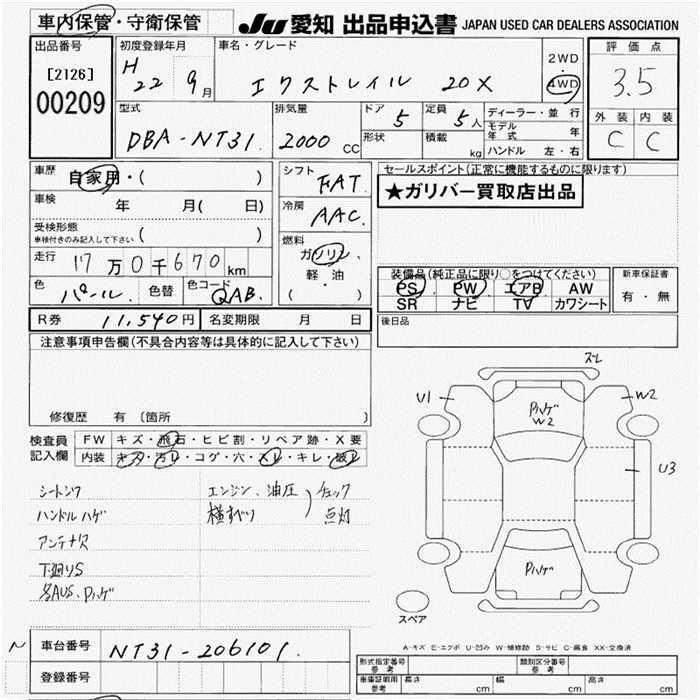 車内保管・守衛保管
JU 愛知 出品申込書 JAPAN USED CAR DEALERS ASSOCIATION
出品番号
[2126]
00209
初度登録年月
H 22 9月
車名・グレード
エクストレイル 20X
2WD
4WD
評価点
3.5
外装 内装
C C
型式
DBA-NT31.
排気量
2000 CC
ドア 5
形状
定員 5人
積載 kg
ディーラー・並行
モデル年式 年
ハンドル 左・右
車歴 自家用・( )
車検 年 月( 日)
受検形態
車検付きのみ記入して下さい ( )
走行 17万0千670km
色 パール. 色替 色コード QAB.
シフト FAT.
冷房 AAC.
燃料
ガソリン
軽・油
( )
セールスポイント(正常に機能するものに限ります)
★ガリバー買取店出品
装備品(純正品に限り○をつけてください)
PS PW エアB AW
SR ナビ TV カワシート
新車保証書
有・無
R券 11,540円 名変期限 月 日
後日品
注意事項申告欄(不具合内容等は具体的に記入して下さい)
修復歴 有〔箇所 〕
検査員記入欄
FW キズ・飛石・ヒビ割・リペア跡・X要
内装 キズ・汚レ・コゲ・穴・スレ・キレ・破レ
シートシワ
ハンドルハゲ
アンテナ欠
下廻りS
各AUS、Pハゲ
エンジン、油圧
横すべり
チェック
点灯
ズレ
U1
W2
Pハゲ
W2
U3
Pハゲ
スペア
A-キズ E-エクボ U-凹み W-補修跡 S-サビ C-腐食 XX-交換済
N
車台番号 NT31-206101.
登録番号
型式指定番号 参考
類別区分番号 参考
車庫証明用 参考 長さ cm 幅 cm 高さ cm